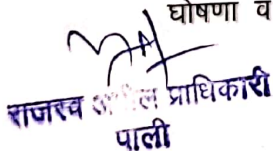 घोषणा व
राजस्व अपील प्राधिकारी
पाली